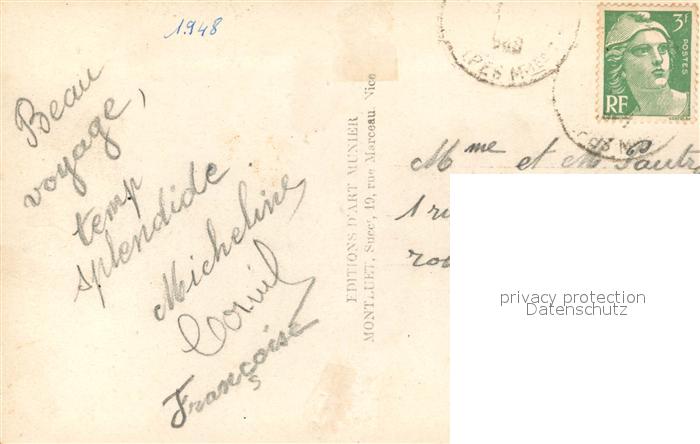 1948
Beau
voyage,
temp
splendide
Micheline
Françoise
EDITIONS D'ART MUNIER
MONTLUET, Succr, 19, rue Marceau, Nice
3F
POSTES
RF
Mme et M
1
privacy protection
Datenschutz